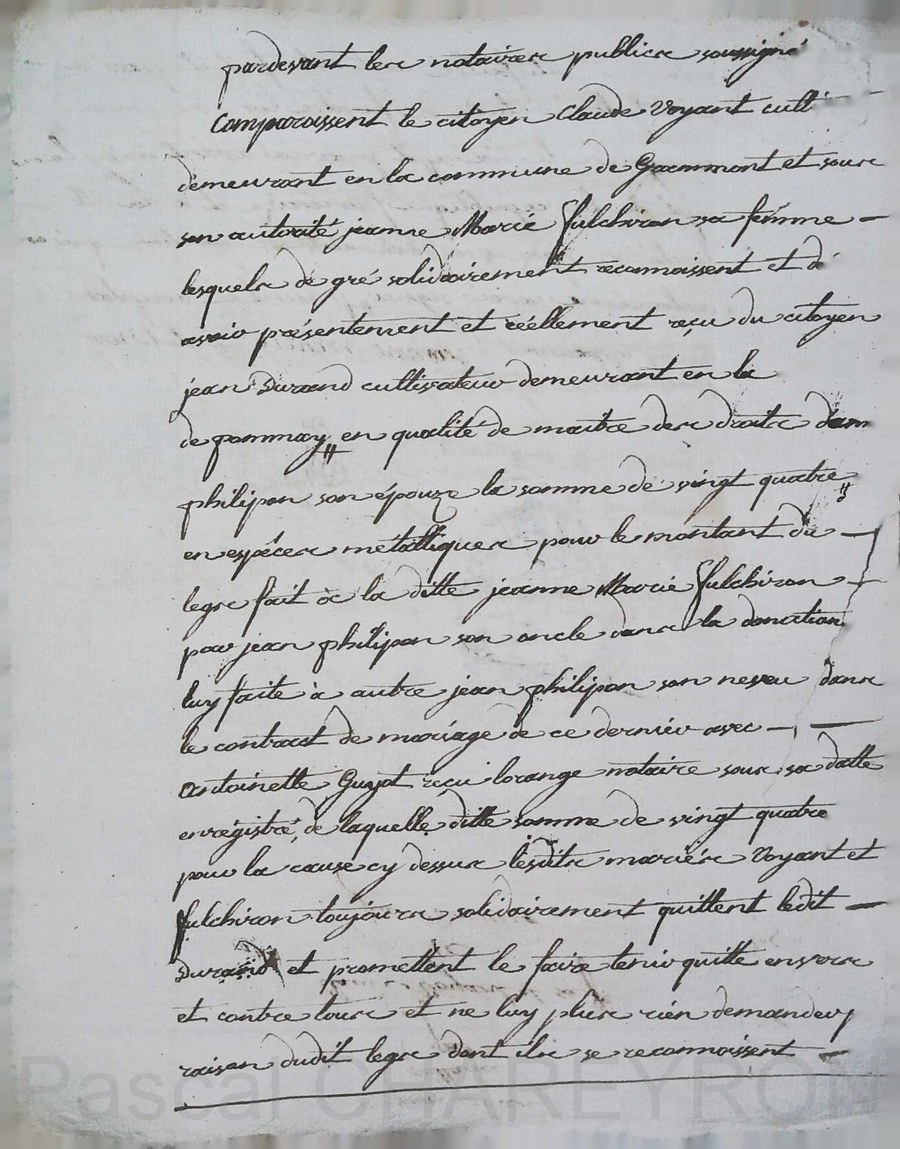 pardevant les notaires publics soussigné
Comparaissent le citoyen Claude Voyant cult
demeurant en la commune de Grammont et sous
son autorité jeanne Marie fulchiron sa fémme
lesquels de gré solidairement reconnoissent et d
avoir présentement et réellement reçu du citoyen
jean Durand cultivateur demeurant en la
de pommay en qualité de maitre des droits dam
philipon son épouze la somme de vingt quatre
en espéces métalliques pour le montant du
legs fait à la ditte jeanne Marie fulchiron
par jean philipon son oncle dans la donation
luy faite à autre jean philipon son neveu dans
le contract de mariage de ce dernier avec
antoinette Guyot reçu lorange notaire sous sa datte
enrégistré, de laquelle ditte somme de vingt quatre
pour la cause cy dessus lesdits mariés Voyant et
fulchiron toujours solidairement quittent ledit
Durand et promettent le faire tenir quitte envers
et contre tous et ne luy plus rien demander
raison dudit legs dont ils se reconnoissent
Pascal CHAREYRON